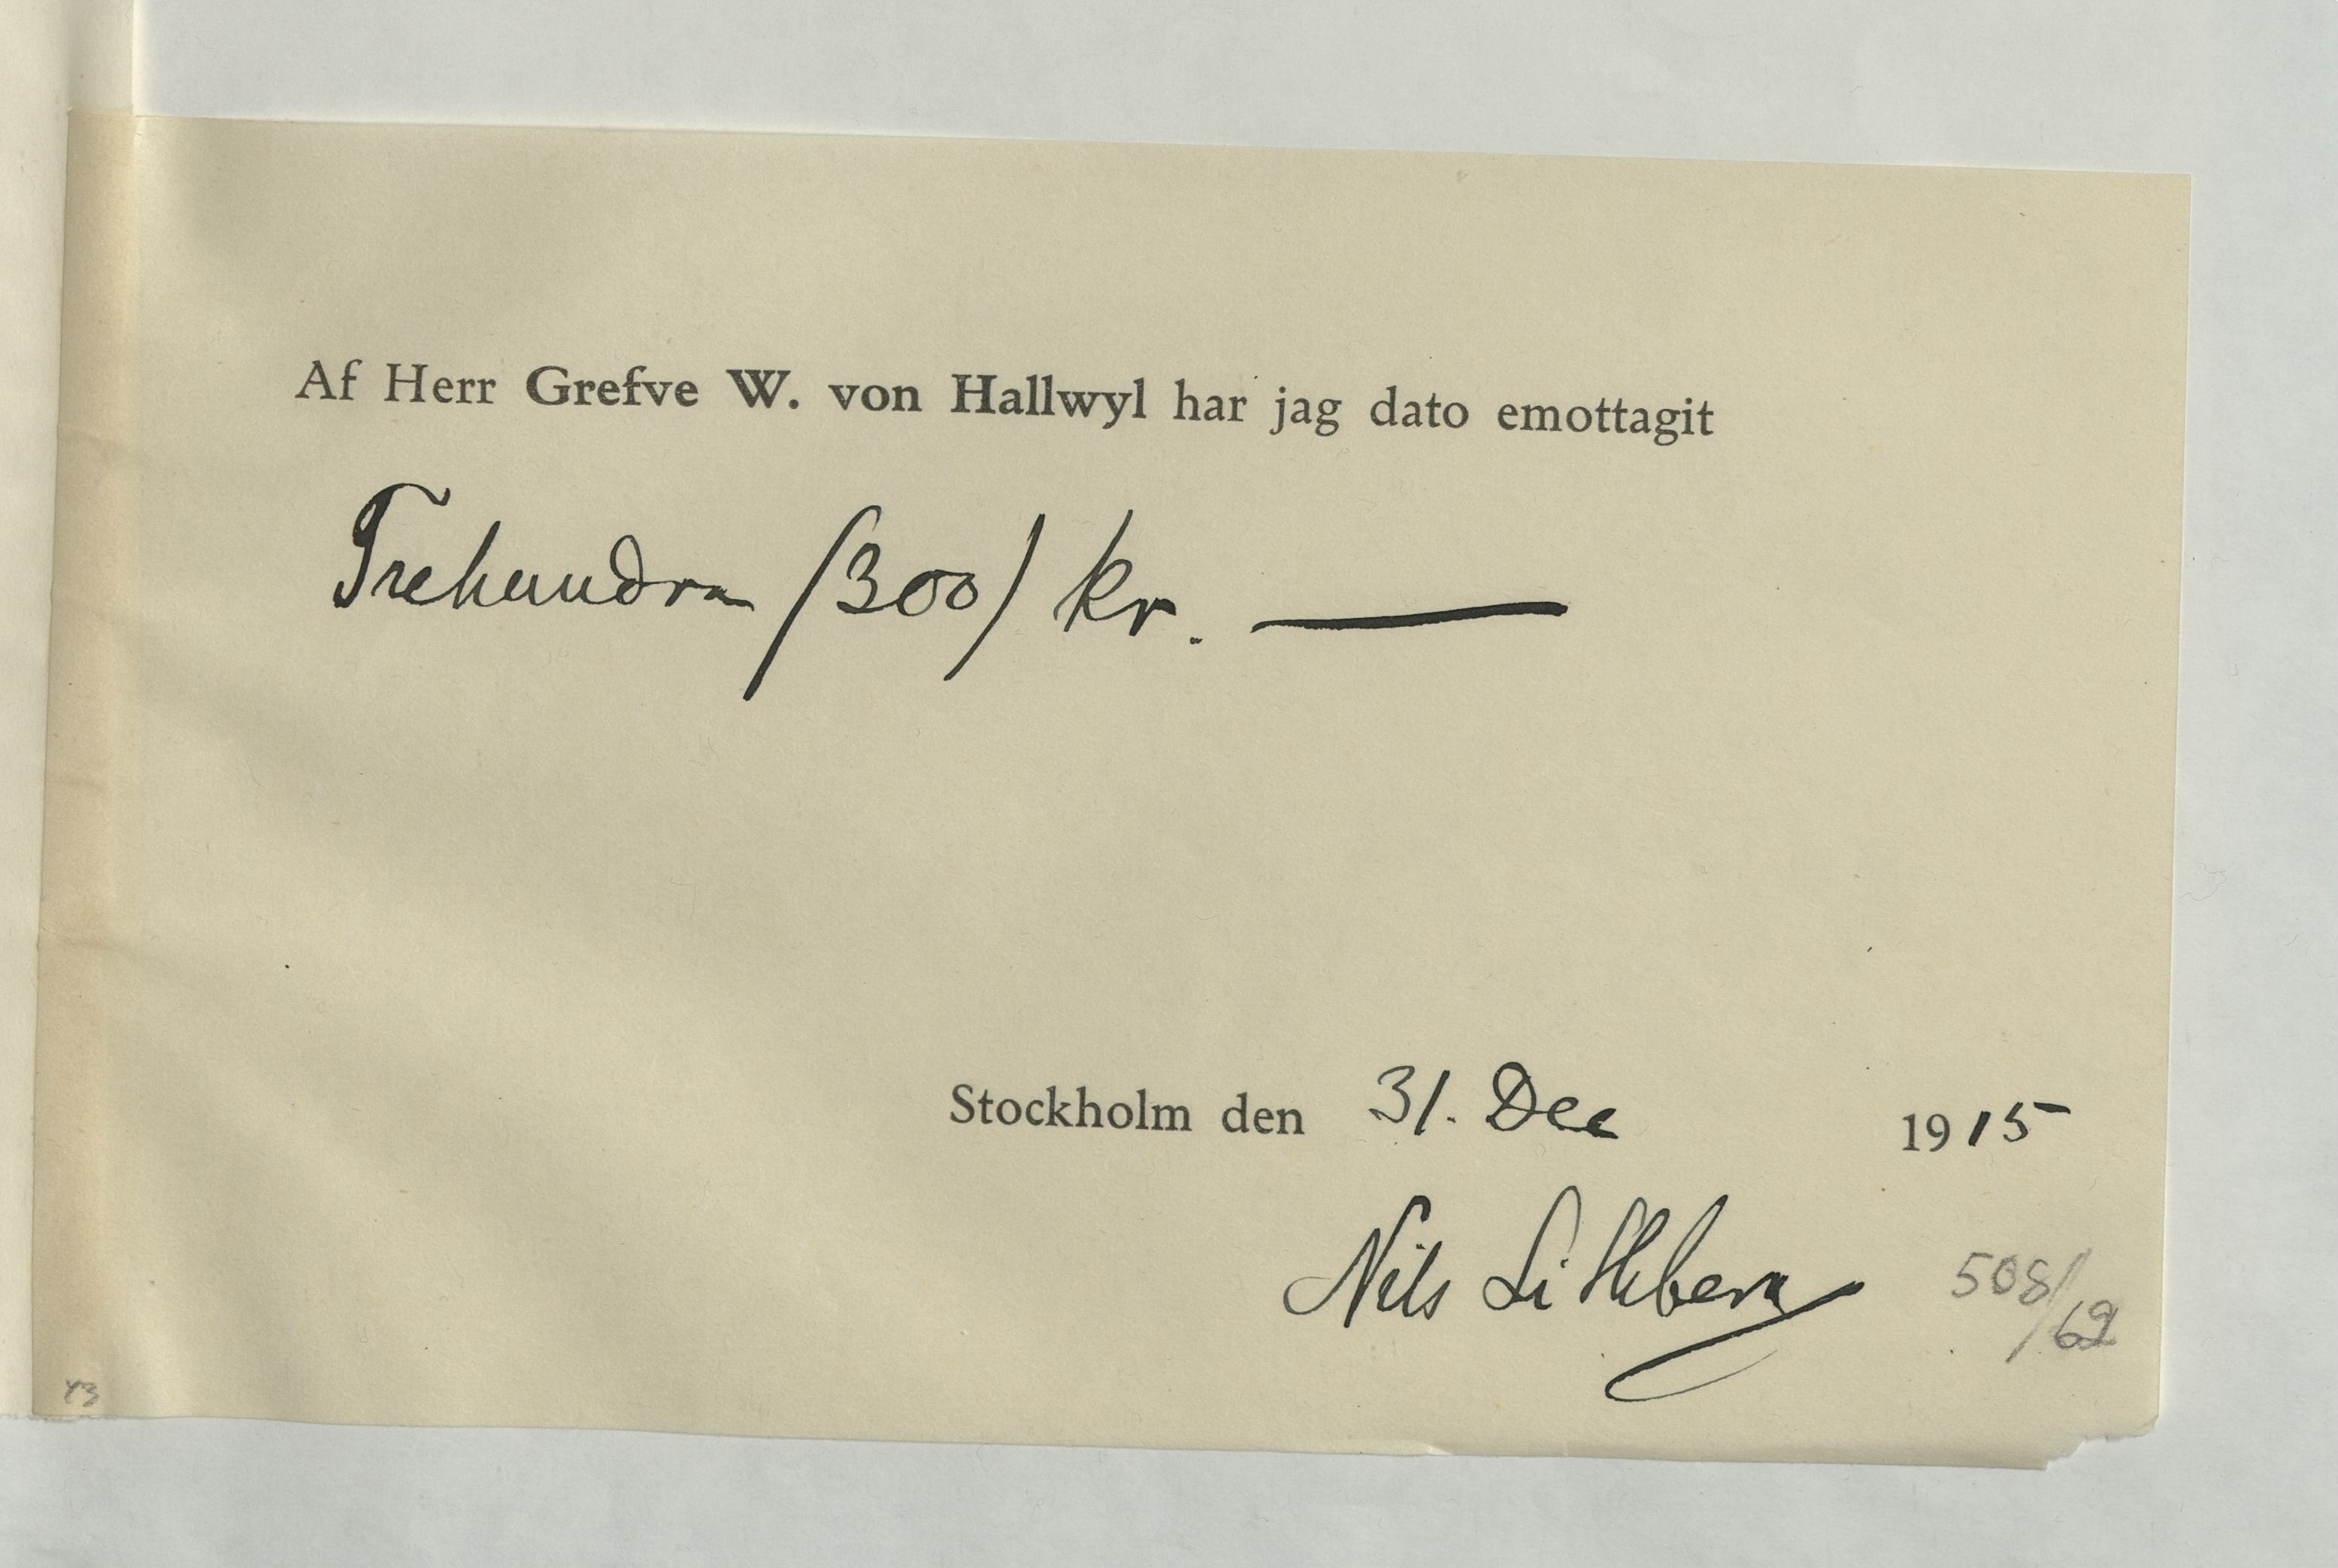 Af Herr Grefve W. von Hallwyl har jag dato emottagit
Trehundra /300/ kr. —
Stockholm den 31. Dec 1915
Nils Lithberg
508/62
43